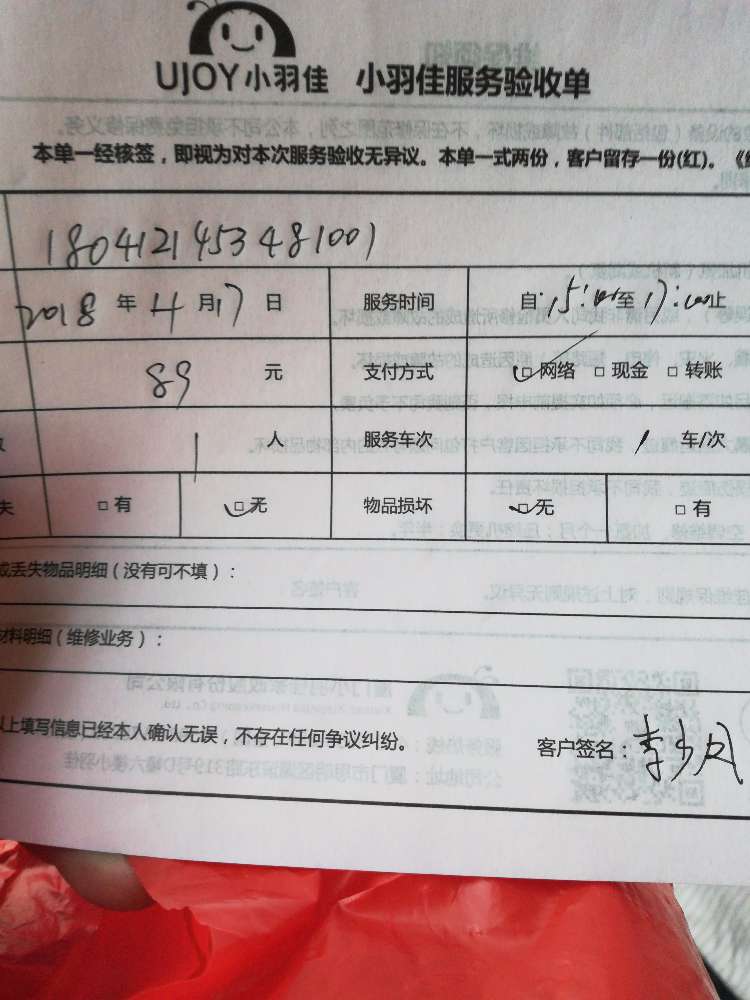 UJOY小羽佳 小羽佳服务验收单
本单一经核签，即视为对本次服务验收无异议。本单一式两份，客户留存一份(红)。
1804121453481001
2018年4月17日 服务时间 自:15:00至17:00止
89元 支付方式 网络 现金 转账
1人 服务车次 1车/次
有 无 物品损坏 无 有
丢失物品明细（没有可不填）：
材料明细（维修业务）：
以上填写信息已经本人确认无误，不存在任何争议纠纷。 客户签名：